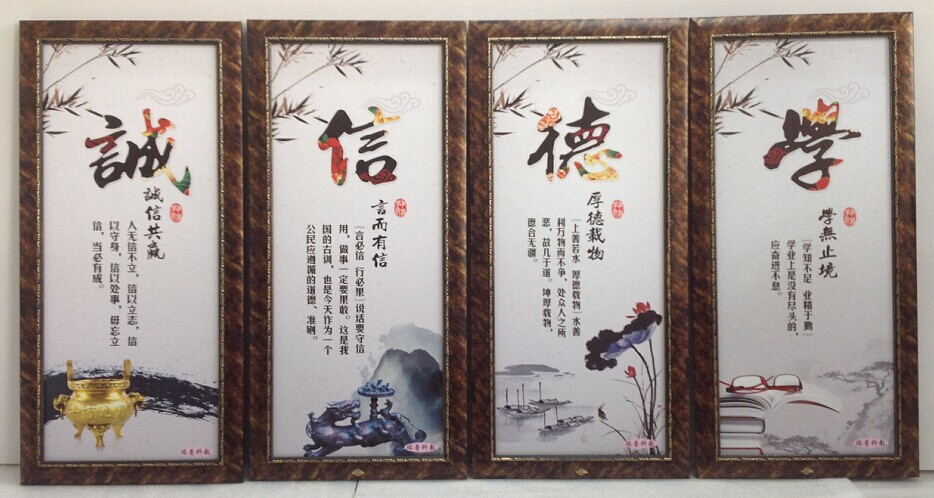 誠
誠信共赢
人无信不立，信以立志，信
以守身，信以处事，毋忘立
信，当必有成。
瑞普科教
信
言而有信
「言必信 行必果」说话要守信
用，做事一定要果敢。这是我
国的古训，也是今天作为一个
公民应遵循的道德、准则。
瑞普科教
德
厚德载物
「上善若水 厚德载物」水善
利万物而不争，处众人之所
恶，故几于道。坤厚载物，
德合无疆。
瑞普科教
學
學無止境
「学知不足 业精于勤」
学业上是没有尽头的，
应奋进不息。
瑞普科教